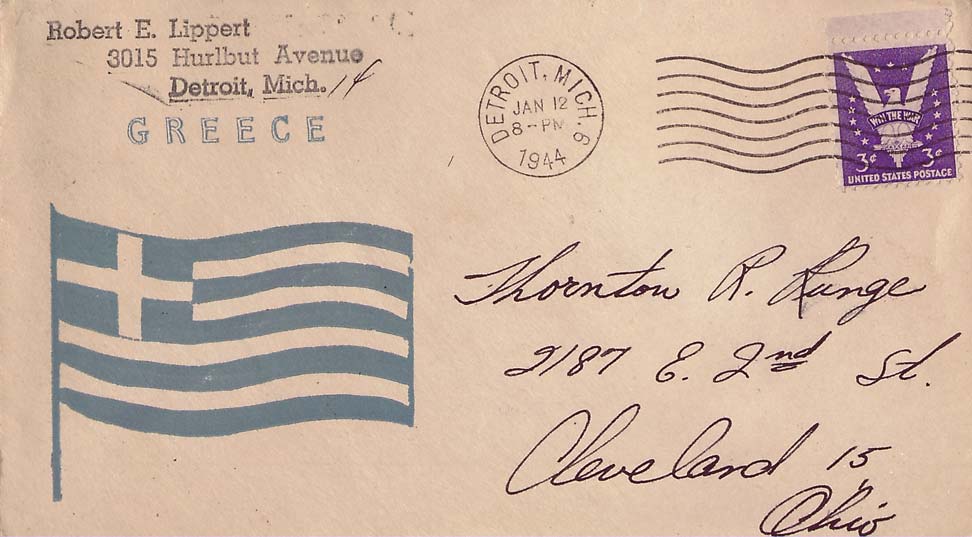 Robert E. Lippert
3015 Hurlbut Avenue
Detroit, Mich. 14
GREECE
DETROIT, MICH. 6
JAN 12
8 - PM
1944
WIN THE WAR
3¢ 3¢
UNITED STATES POSTAGE
Thornton R. Runge
2187 E. 2nd St.
Cleveland 15,
Ohio